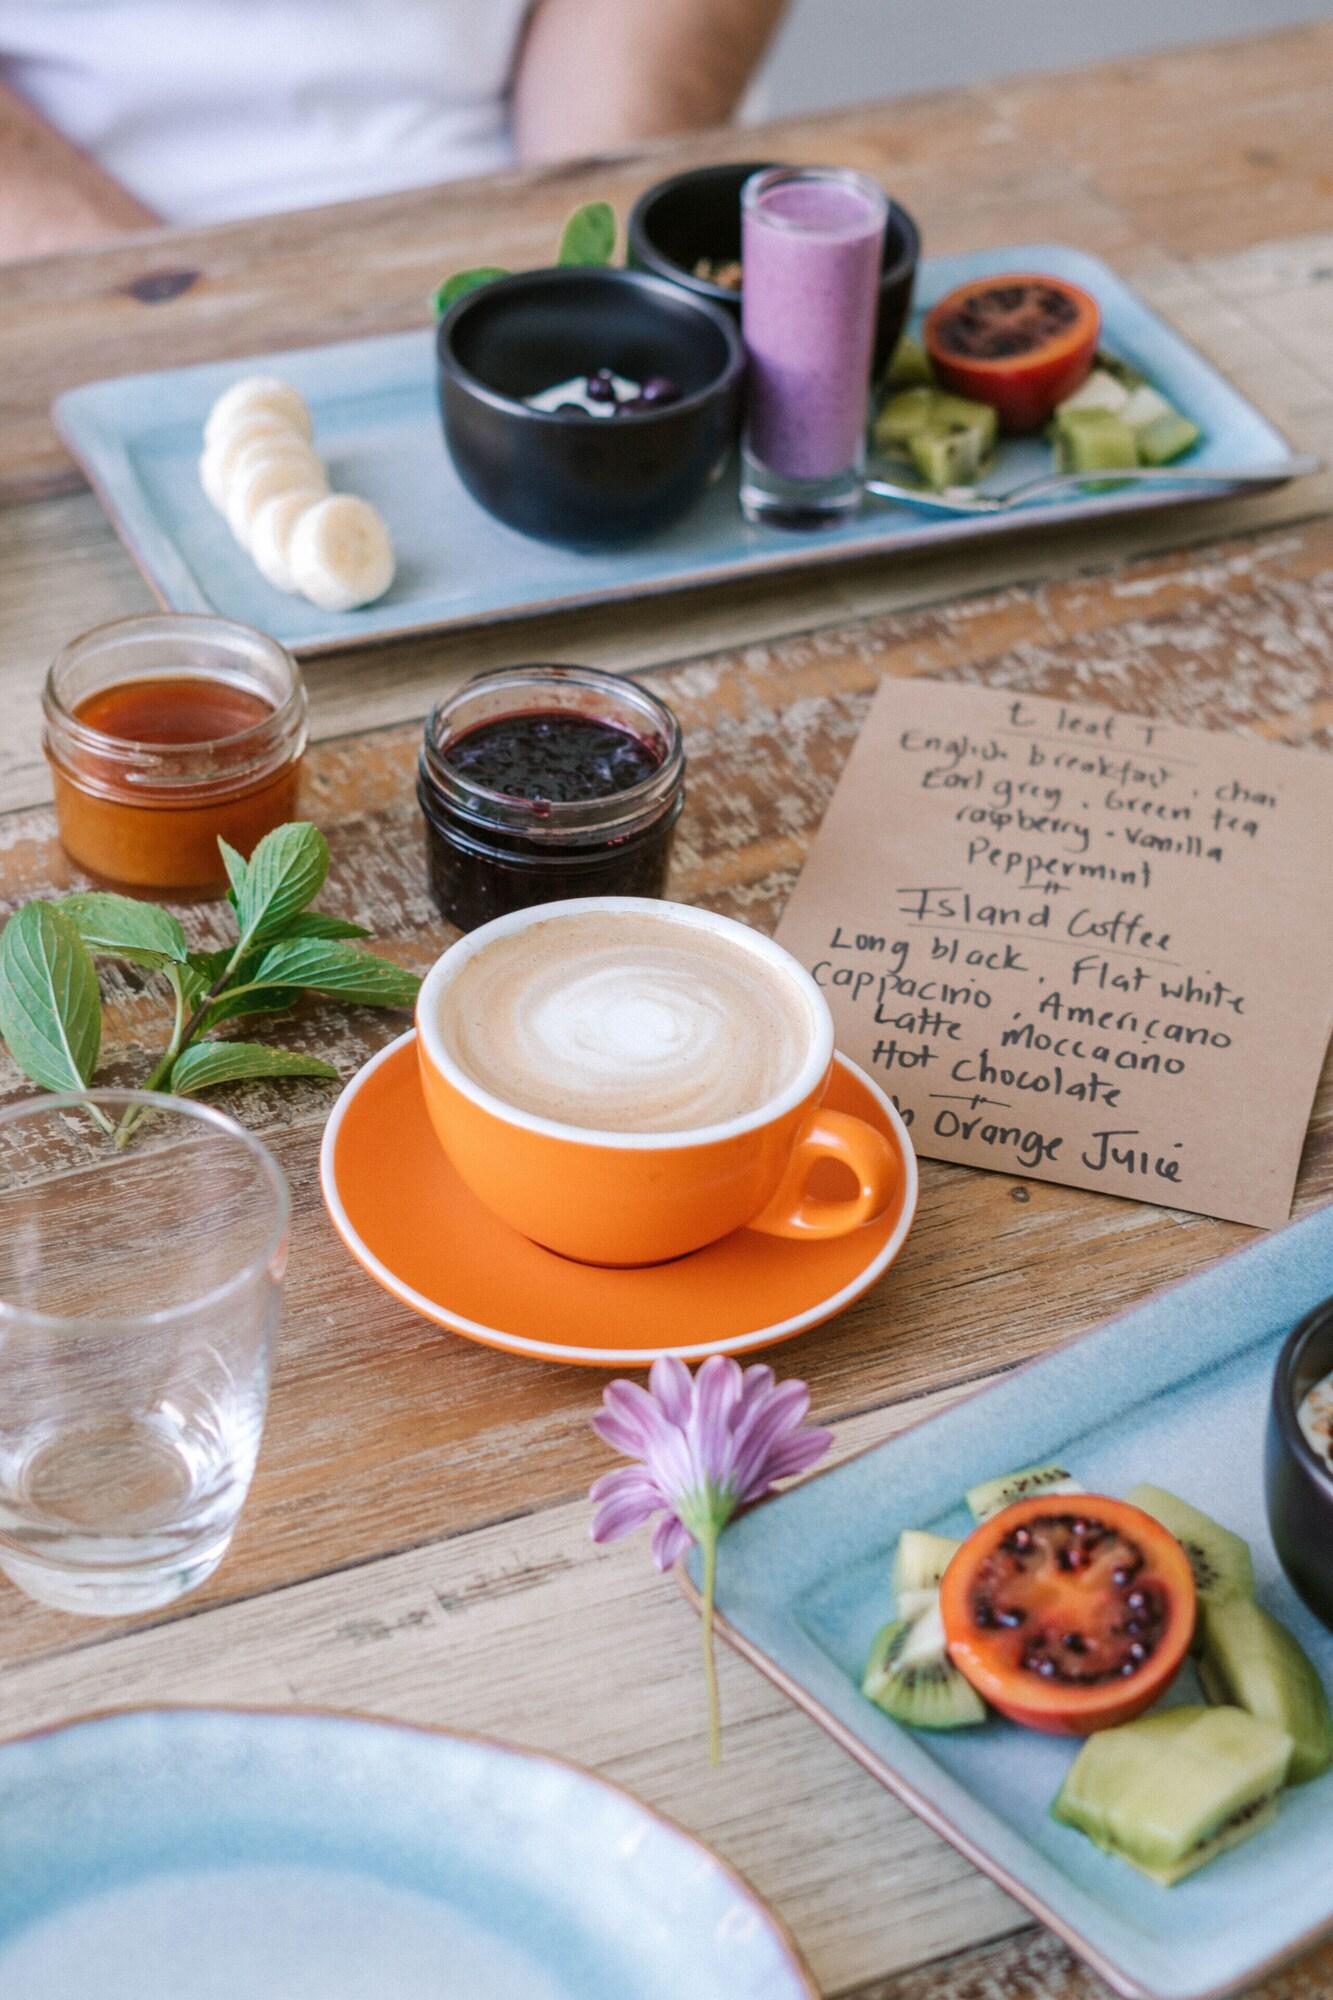 t leaf T
English breakfast, chai
Earl grey, Green tea
raspberry - vanilla
Peppermint
Island Coffee
Long black, Flat white
Cappacino, Americano
Latte Moccacino
Hot Chocolate
Orange Juice